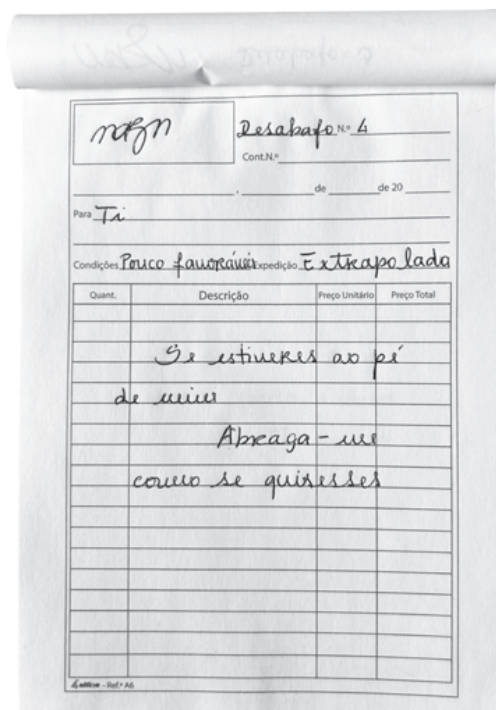 Desabafo N.º 4
Cont.N.º
, de de 20
Para Ti
Condições Pouco favoráveis Expedição Extrapolada
Quant. Descrição Preço Unitário Preço Total
Se estiveres ao pé
de mim
Abraça-me
como se quisesses
Ref.ª A6